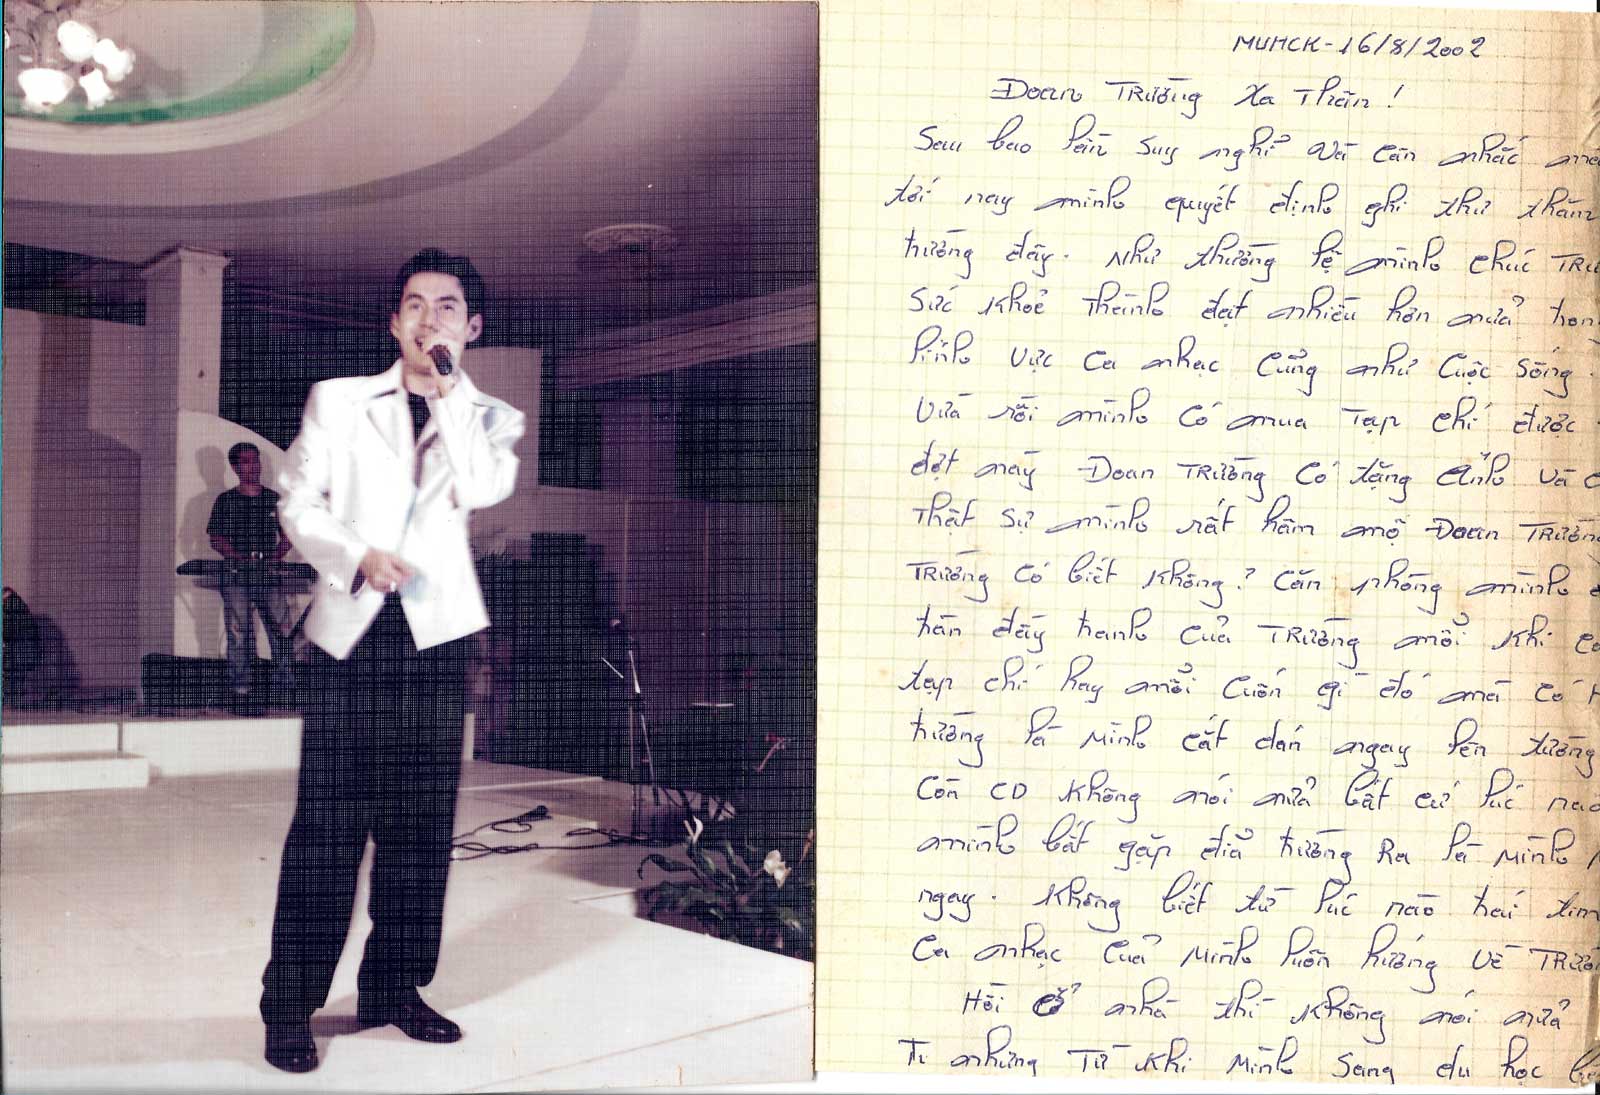 МИНСК-16/8/2002
Đoan Trường Xa Thân!
Sau bao lần suy nghỉ và cân nhắc
tới nay mình quyết định ghi thư thăm
trường đây. Như thường lệ mình chúc
Sức khoẻ thành đạt nhiều hơn nửa
lỉnh vực ca nhạc củng như cuộc sống.
Vừa rồi mình có mua tạp chí được
đợt này Đoan Trường có tặng ảnh và
Thật sự mình rất hâm mộ Đoan Trường
Trường có biết không? Căn phòng mình
tràn đầy tranh của Trường mỗi khi có
tạp chí hay mỗi cuốn gì đó mà có
trường là mình cắt dán ngay lên tường
Còn CD không nói nửa bất cứ lúc nào
mình bắt gặp đỉa trường ra là mình
ngay. Không biết từ lúc nào trái tim
Ca nhạc của mình luôn hướng về Trường
Hồi ở nhà thì không nói nửa
Từ khi mình sang du học